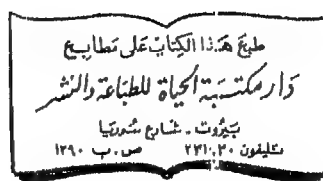 طبع هذا الكتاب على مطابع
دار مكتبة الحياة للطباعة والنشر
بيروت - شارع سوريا
تليفون ٢٣١٠٢٠ ص.ب ١٣٩٠